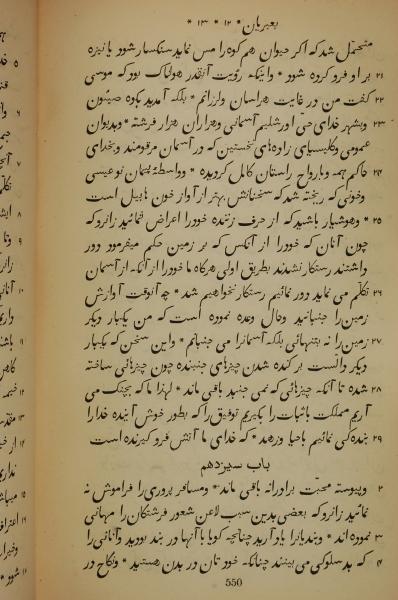 بعبریان * ۱۲ * ۱۳ *
متحمّل شدکه اکر حیوان هم کوه را مس نماید سنکسار شود یا نیزه
۲۱ براو فرو کرده شود * واینکه رؤیت آنقدر هولناک بود که موسی
۲۲ کفت من در غایت هراسان ولرزانم * بلکه آمدید بکوه صیّون
۲۳ وبشهر خدای حیّ اورشلیم آسمانی وهزاران هزار فرشته * وبدیوان
عمومی وکلیسیای زاده‌های نخستین که در آسمان مرقومند وبخدای
۲۴ حاکم همه وبارواح راستان کامل کردیده * وواسطهٔ پیمان نو عیسی
وخونی که ریخته شد که سخنانش بهتر از آواز خون هابیل است
۲۵ * وهوشیار باشید که از حرف زننده خودرا اعراض ننمائید زانرو که
چون آنان که خودرا از آنکس که بر زمین حکم میفرمود دور
داشتند رستکار نشدند بطریق اولی هرکاه ما خودرا از آنکه از آسمان
۲۶ تکلّم می نماید دور نمائیم رستکار نخواهیم شد * چه آنوقت آوازش
زمین را جنبانید وحال وعده نموده است که من یکبار دیکر
۲۷ زمین را نه بتنهائی بلکه آسمانرا می جنبانم * واین سخن که یکبار
دیکر دالّست بر کنده شدن چیزهای جنبنده چون چیزهائی ساخته
۲۸ شده تا آنکه چیزهائی که نمی جنبد باقی ماند * لهذا ما که بچنک می
آریم مملکت باثبات را بکیریم توفیق را که بطور خوش آینده خدا را
۲۹ بندکی نمائیم باحیا وزهد * که خدای ما آتش فرو کیرنده است
باب سیزدهم
۲ وپیوسته محبّت برادرانه باقی ماند * ومسافر پروری را فراموش نه
نمائید زانرو که بعضی بدین سبب لاعن شعور فرشتکان را مهمانی
۳ نموده اند * وبندیانرا یاد آرید چنانچه کویا با آنها در بند بودید وآنانی را
۴ که بد سلوکی می بینند چنانکه خود تان در بدن هستید * ونکاح در
550